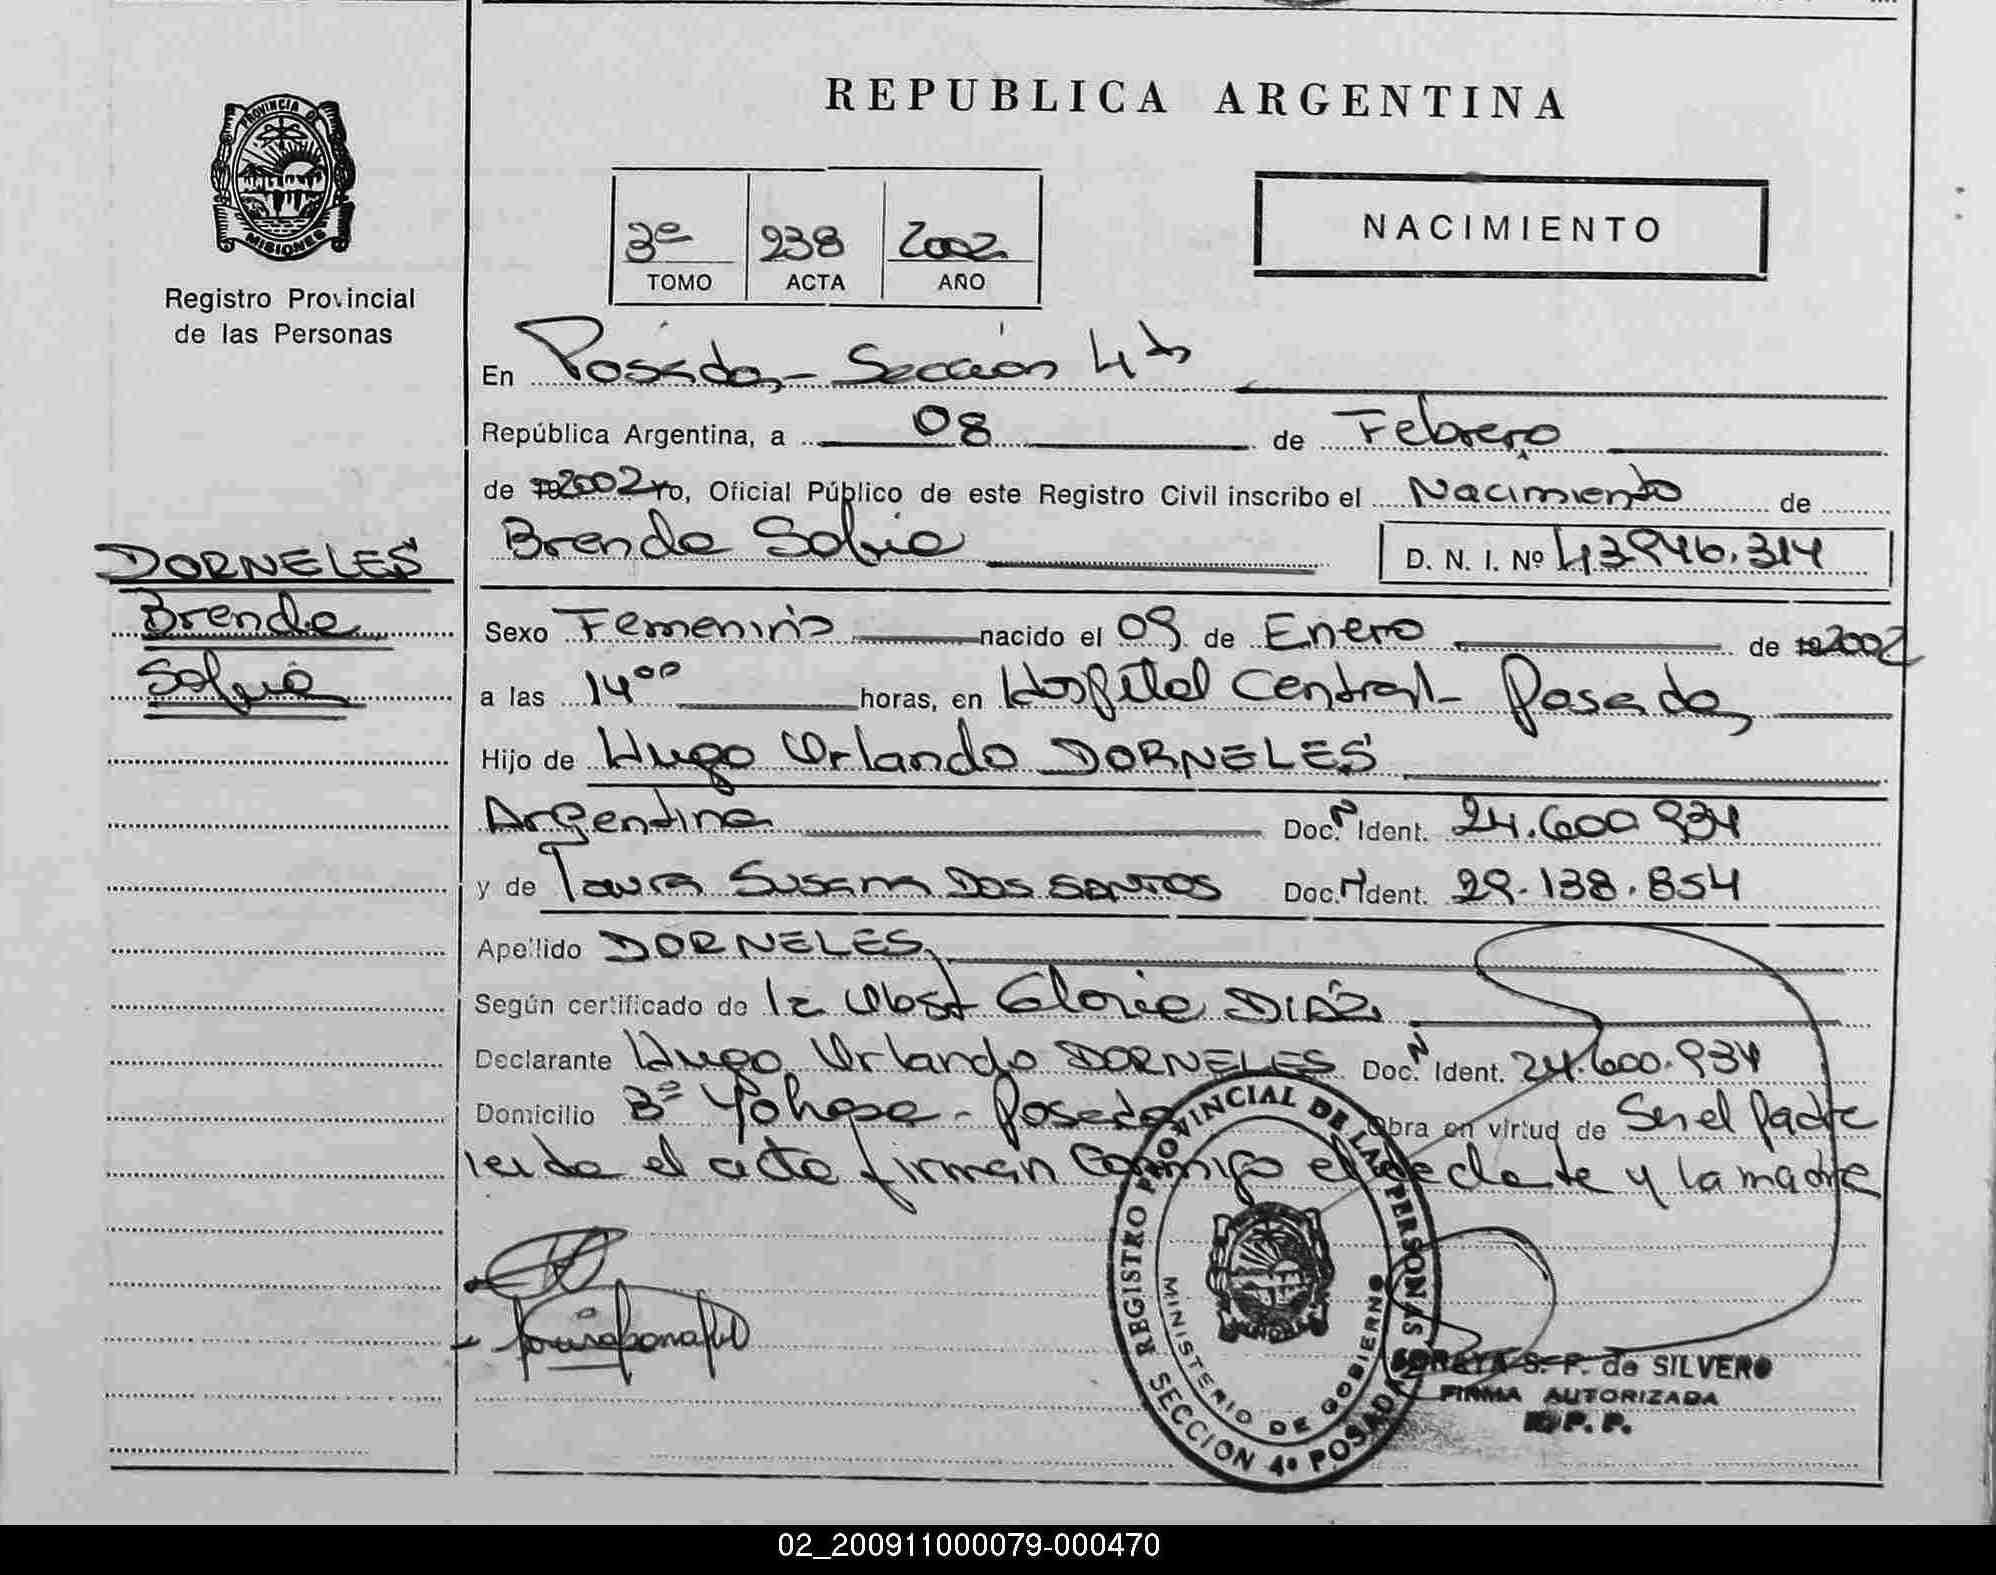 REPUBLICA ARGENTINA
PROVINCIA DE
MISIONES
Registro Provincial
de las Personas
3º 238 2002
TOMO ACTA AÑO
NACIMIENTO
En Posadas - Sección 4ta
República Argentina, a 08 de Febrero
de 2002 yo, Oficial Público de este Registro Civil inscribo el Nacimiento de
Brenda Sofia D. N. I. Nº 43946.314
DORNELES
Brenda
Sofia
Sexo Femenino nacido el 09 de Enero de 2002
a las 14ºº horas, en Hospital Central - Posadas
Hijo de Hugo Orlando DORNELES
Argentina Doc. N Ident. 24.600 934
y de Laura Susana DOS SANTOS Doc. N Ident. 29.138.854
Apellido DORNELES
Según certificado de la Obst Gloria DIAZ
Declarante Hugo Orlando DORNELES Doc. N Ident. 24.600.934
Domicilio Bº Yohasa - Posadas Obra en virtud de Ser el padre
leida el acta firman conmigo el declate y la madre
REGISTRO PROVINCIAL DE LAS PERSONAS
MINISTERIO DE GOBIERNO
SECCION 4º POSADAS
SORAYA S. P. de SILVERO
FIRMA AUTORIZADA
R.P.P.
02_200911000079-000470